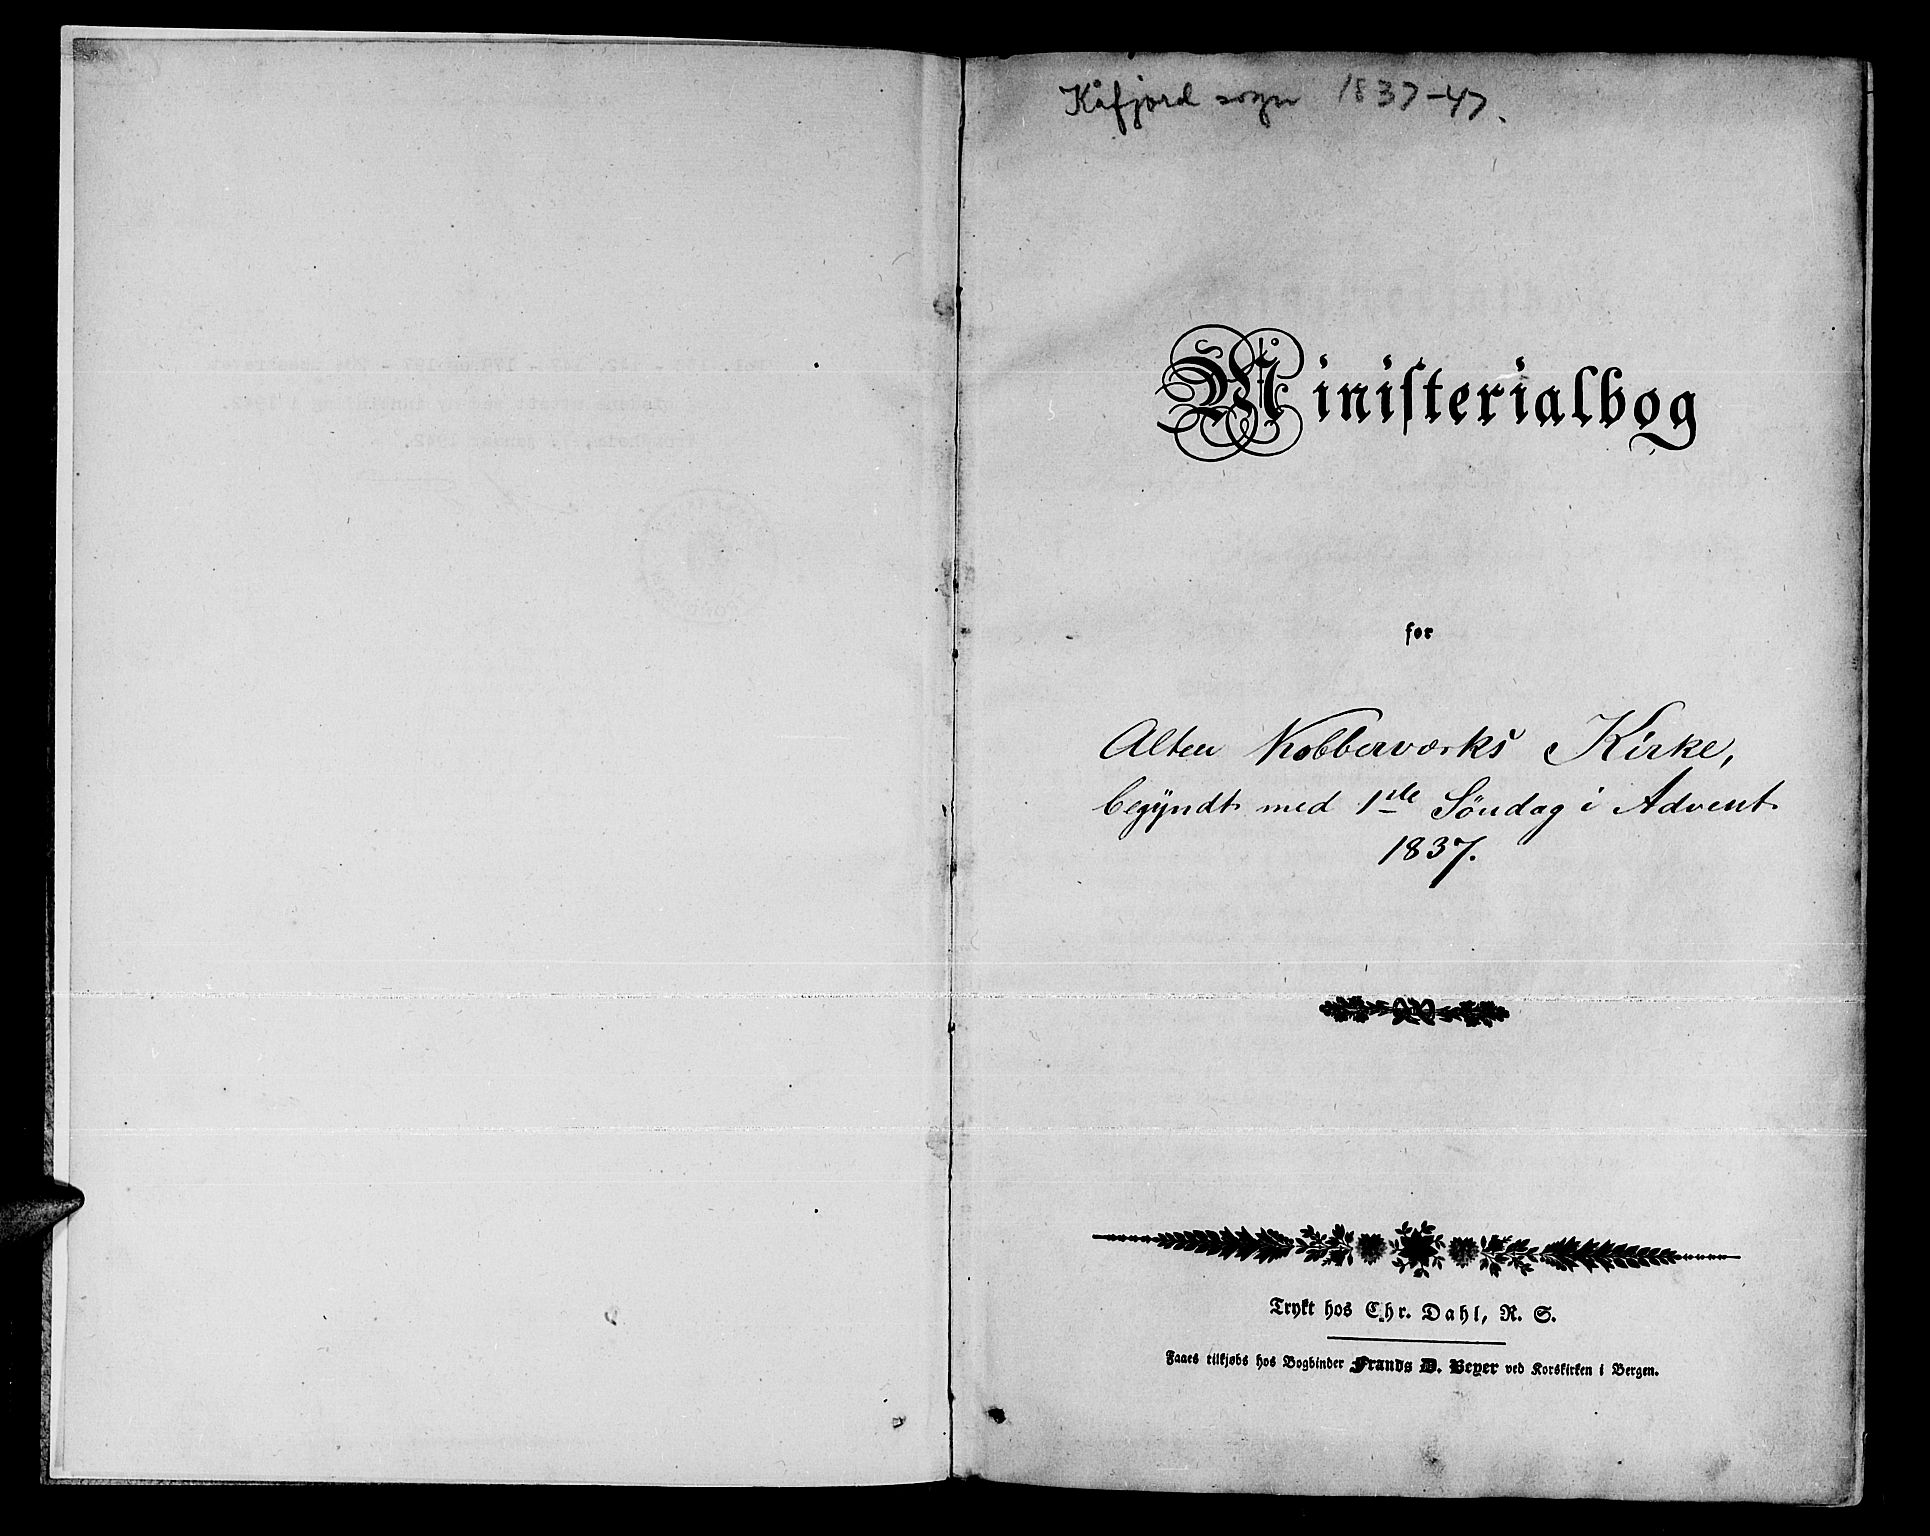 Kåfjord sogn 1837-47.
Ministerialbog
for
Alten Kobberværks Kirke,
begÿndt med 1ste Søndag i Advent
1837.
Trykt hos Chr. Dahl, R. S.
Faaes tilkjøbs hos Bogbinder Frands D. Beyer ved Korskirken i Bergen.